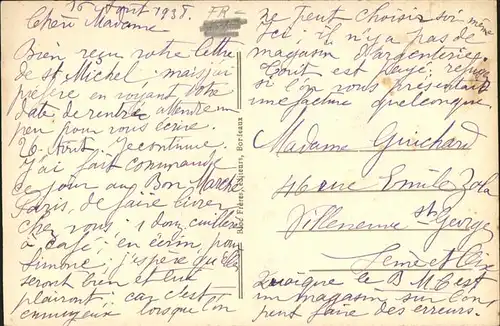 16 Août 1938.
Chère Madame
Bien reçu votre lettre
de St Michel, mais j'ai
préféré en voyant votre
date de rentrée attendre un
peu pour vous écrire.
26 Août. Je continue,
J'ai fait commande
ce jour au Bon Marché
Paris, de faire livrer
chez vous; 1 douz. cuillères
à café; en écrin, pour
Simone; j'espère qu'elles
seront bien et lui
plairont, car c'est
ennuyeux lorsque l'on
FR=
Bloc Frères, éditeurs, Bordeaux
ne peut choisir soi même
Ici il n'y a pas de
magasin d'argenterie.
Tout est payé; refusez
si l'on vous présentait
une facture quelconque
Madame Guichard
46 rue Emile Zola
Villeneuve St Georges
Seine et Oise
Quoique le B M est
un magasin sur l'on
peut faire des erreurs.